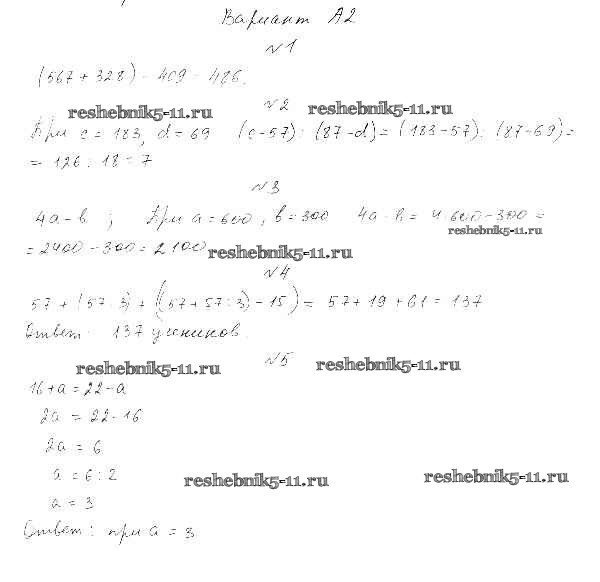 Вариант А2
№1
(567 + 328) - 409 = 486.
reshebnik5-11.ru
№2
reshebnik5-11.ru
При c = 183, d = 69 (c-57) : (87-d) = (183-57) : (87-69) =
= 126 : 18 = 7
№3
4a - b ; При a = 600, b = 300 4a - b = 4·600 - 300 =
reshebnik5-11.ru
= 2400 - 300 = 2100
reshebnik5-11.ru
№4
57 + (57 : 3) + ((57 + 57 : 3) - 15) = 57 + 19 + 61 = 137
Ответ: 137 учеников.
№5
reshebnik5-11.ru
reshebnik5-11.ru
16 + a = 22 - a
2a = 22 - 16
2a = 6
a = 6 : 2
reshebnik5-11.ru
reshebnik5-11.ru
a = 3
Ответ: при a = 3